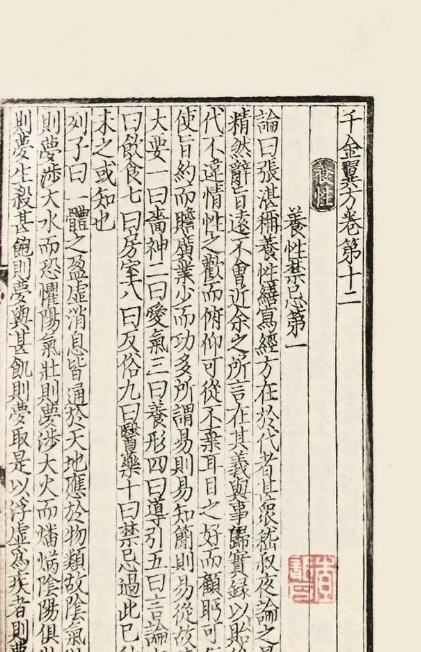 千金翼方卷第十二
養性
養性禁忌第一
論曰張湛稱養性繕寫經方在於代者甚衆嵇叔夜論之最
精然辭旨遠不會近余之所言在其義與事歸實録以貽後
代不違情性之歡而俯仰可從不棄耳目之好而顧眄可
使旨約而贍廣業少而功多所謂易則易知簡則易從故
大要一曰嗇神二曰愛氣三曰養形四曰導引五曰言論
曰飲食七曰房室八曰反俗九曰醫藥十曰禁忌過此已
未之或知也
列子曰一體之盈虛消息皆通於天地應於物類故陰氣
則夢涉大水而恐懼陽氣壯則夢涉大火而燔焫陰陽俱
則夢生殺甚飽則夢與甚飢則夢取是以浮虛爲疾者則夢